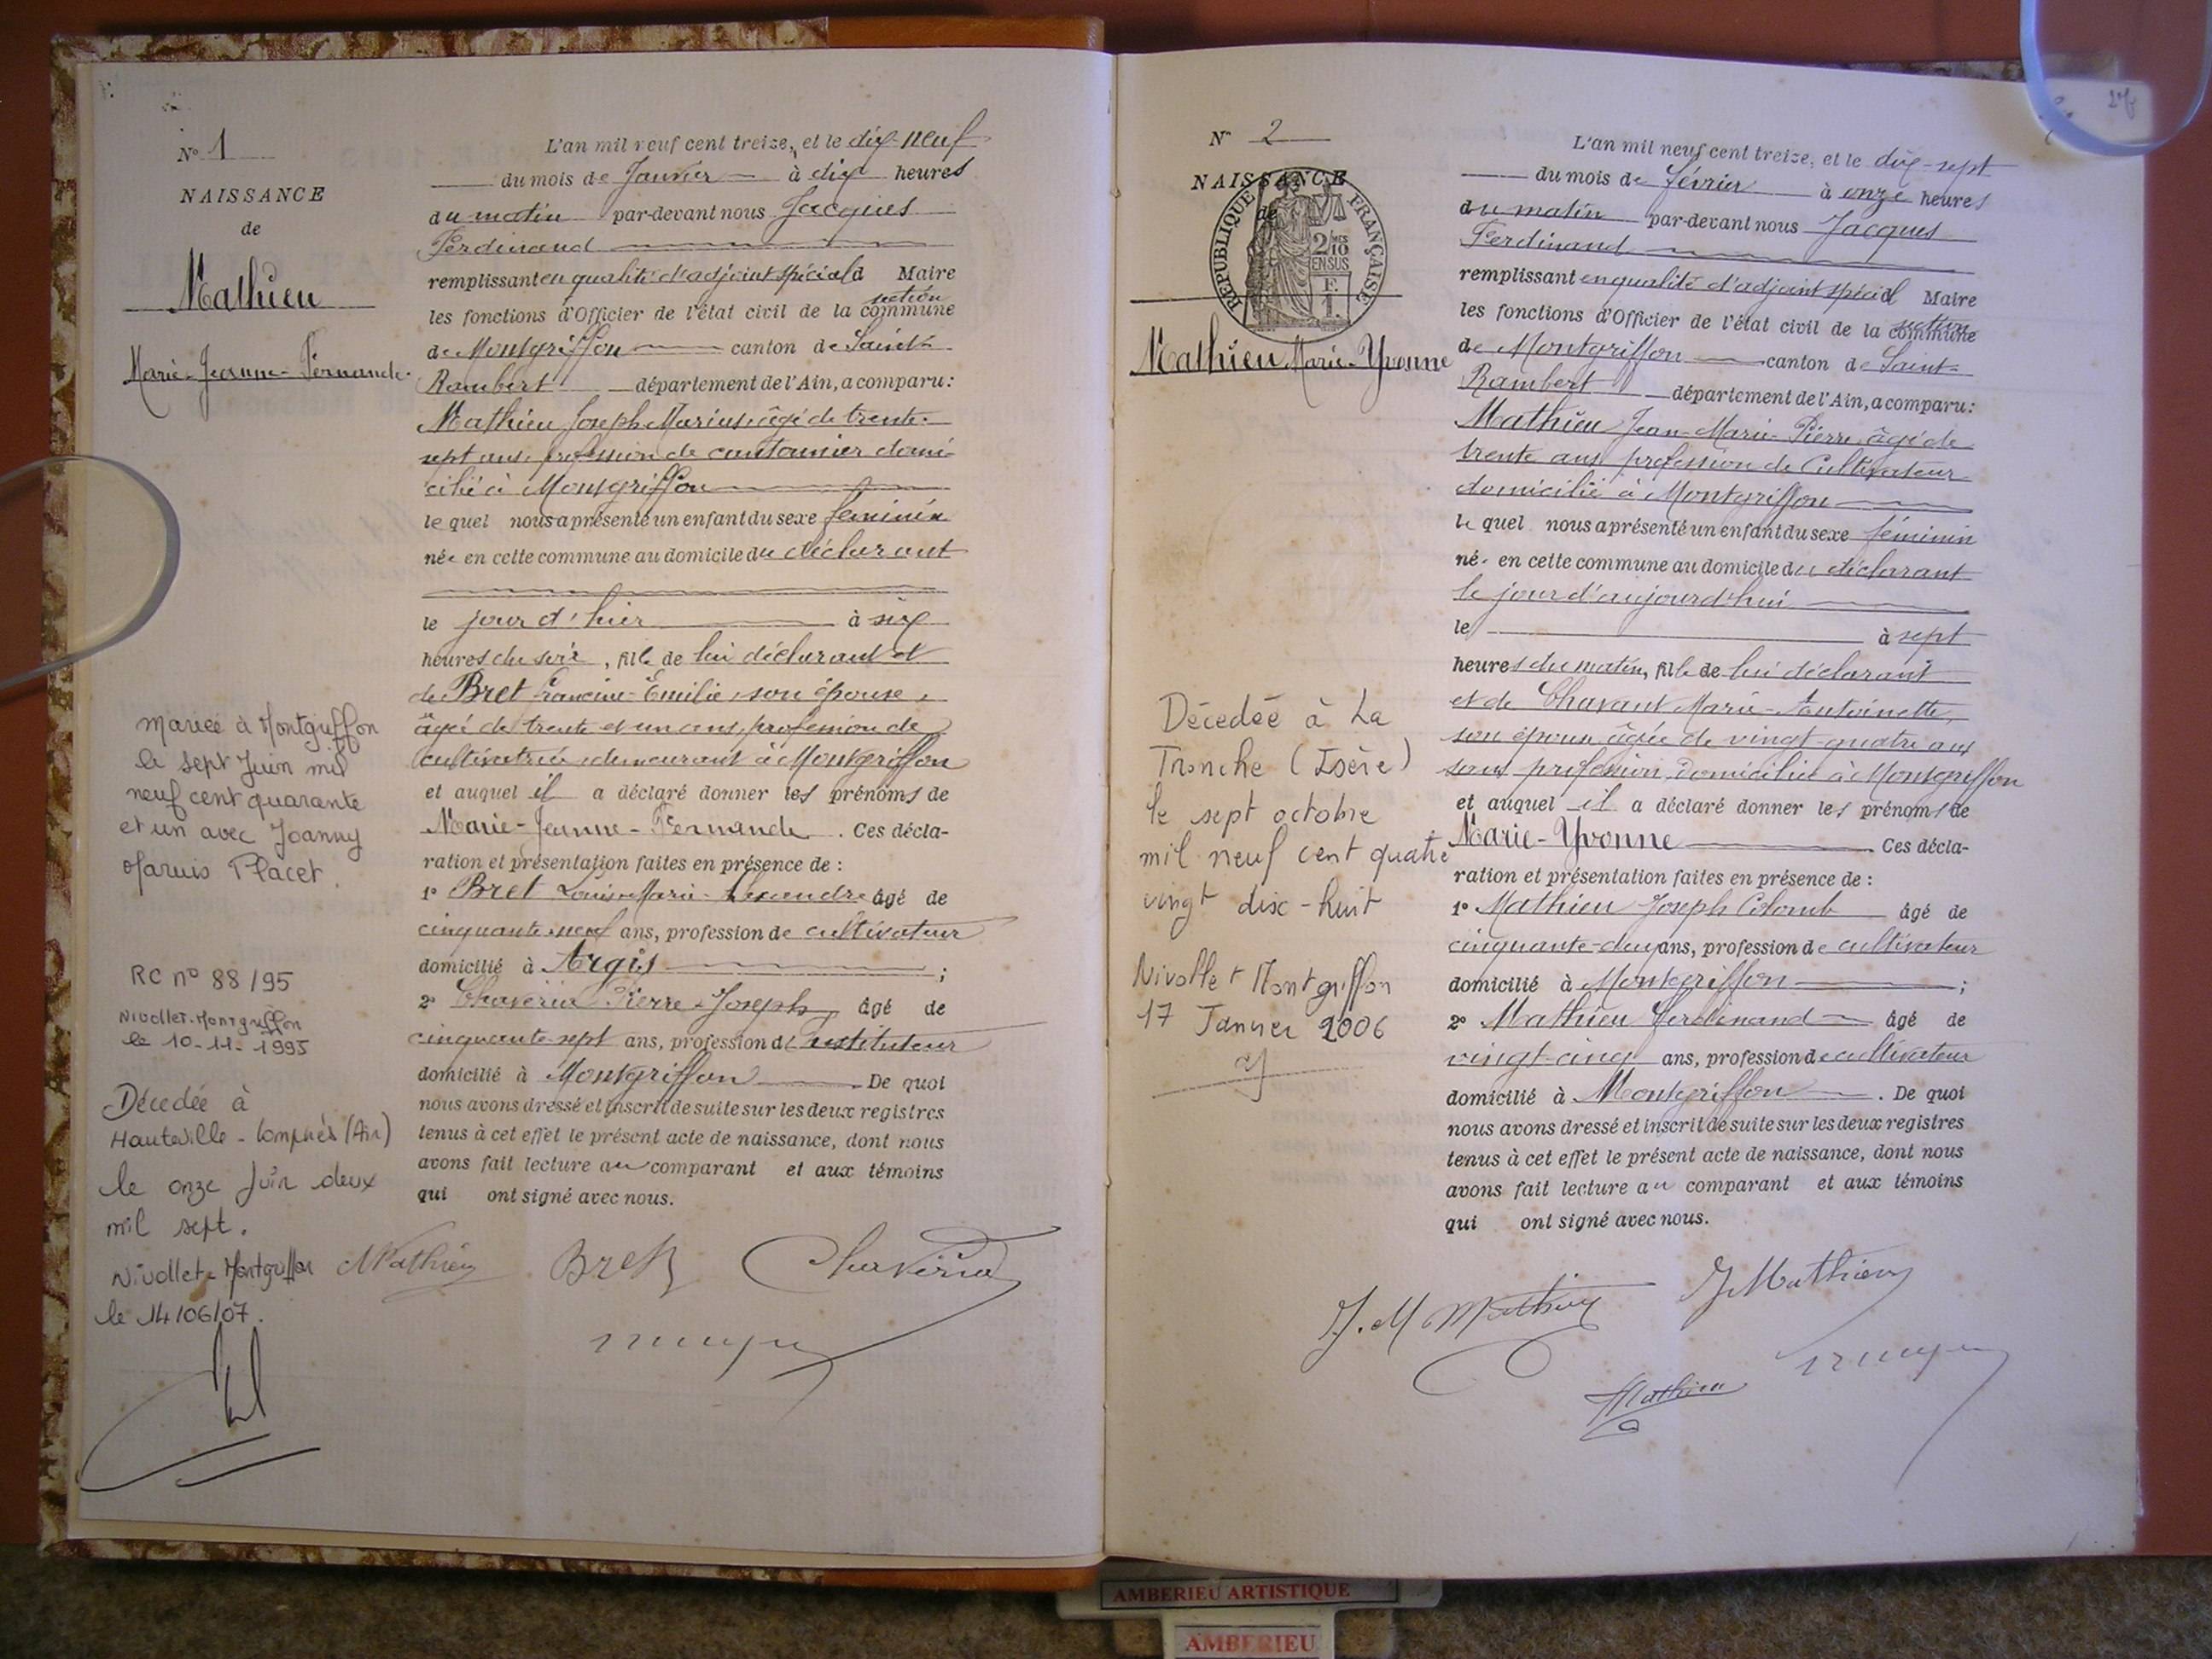 N° 1
NAISSANCE
de
Mathieu
Marie-Jeanne-Fernande.
mariée à Montgriffon
le sept Juin mil
neuf cent quarante
et un avec Joanny
Marius Placet.
RC n° 88/95
Nivollet-Montgriffon
le 10-11-1995
Décédée à
Hauteville-Lompnès (Ain)
le onze Juin deux
mil sept.
Nivollet-Montgriffon
le 14/06/07.
L'an mil neuf cent treize, et le dix-neuf
du mois de Janvier à dix heures
du matin par-devant nous Jacques
Ferdinand
remplissant en qualité d'adjoint spécial d Maire
section
les fonctions d'Officier de l'état civil de la commune
de Montgriffon canton de Saint-
Rambert département de l'Ain, a comparu:
Mathieu Joseph Marius, âgé de trente-
sept ans, profession de cantonnier domi-
cilié à Montgriffon
le quel nous a présenté un enfant du sexe féminin
née en cette commune au domicile du déclarant
le jour d'hier à six
heures du soir, fille de lui déclarant et
de Bret Francine-Emilie, son épouse,
âgée de trente et un ans, profession de
cultivatrice demeurant à Montgriffon
et auquel il a déclaré donner les prénoms de
Marie-Jeanne-Fernande. Ces décla-
ration et présentation faites en présence de :
1° Bret Louis-Marie- âgé de
cinquante-neuf ans, profession de cultivateur
domicilié à Argis ;
2° Chavéria Pierre-Joseph, âgé de
cinquante sept ans, profession d'Instituteur
domicilié à Montgriffon De quoi
nous avons dressé et inscrit de suite sur les deux registres
tenus à cet effet le présent acte de naissance, dont nous
avons fait lecture au comparant et aux témoins
qui ont signé avec nous.
Mathieu Bret Chavéria
N° 2
NAISSANCE
de
RÉPUBLIQUE FRANÇAISE
2/10MES
EN SUS
F.
1.
Mathieu Marie-Yvonne
Décedée à La
Tronche (Isère)
le sept octobre
mil neuf cent quatre
vingt disc-huit
Nivollet Montgriffon
17 Janvier 2006
L'an mil neuf cent treize, et le dix-sept
du mois de février à onze heures
du matin par-devant nous Jacques
Ferdinand
remplissant en qualité d'adjoint spécial Maire
section
les fonctions d'Officier de l'état civil de la commune
de Montgriffon canton de Saint-
Rambert département de l'Ain, a comparu:
Mathieu Jean-Marie-Pierre âgé de
trente ans profession de Cultivateur
domicilié à Montgriffon
le quel nous a présenté un enfant du sexe féminin
née en cette commune au domicile du déclarant
le jour d'aujourd'hui
le à sept
heures du matin, fille de lui déclarant
et de Chavant Marie-Antoinette,
son épouse âgée de vingt-quatre ans
sans profession domiciliée à Montgriffon
et auquel il a déclaré donner les prénoms de
Marie-Yvonne Ces décla-
ration et présentation faites en présence de :
1° Mathieu Joseph Colomb âgé de
cinquante-deux ans, profession de cultivateur
domicilié à Montgriffon ;
2° Mathieu Ferdinand âgé de
vingt-cinq ans, profession de cultivateur
domicilié à Montgriffon. De quoi
nous avons dressé et inscrit de suite sur les deux registres
tenus à cet effet le présent acte de naissance, dont nous
avons fait lecture au comparant et aux témoins
qui ont signé avec nous.
J. M Mathieu J Mathieu
Mathieu
AMBERIEU ARTISTIQUE
AMBERIEU